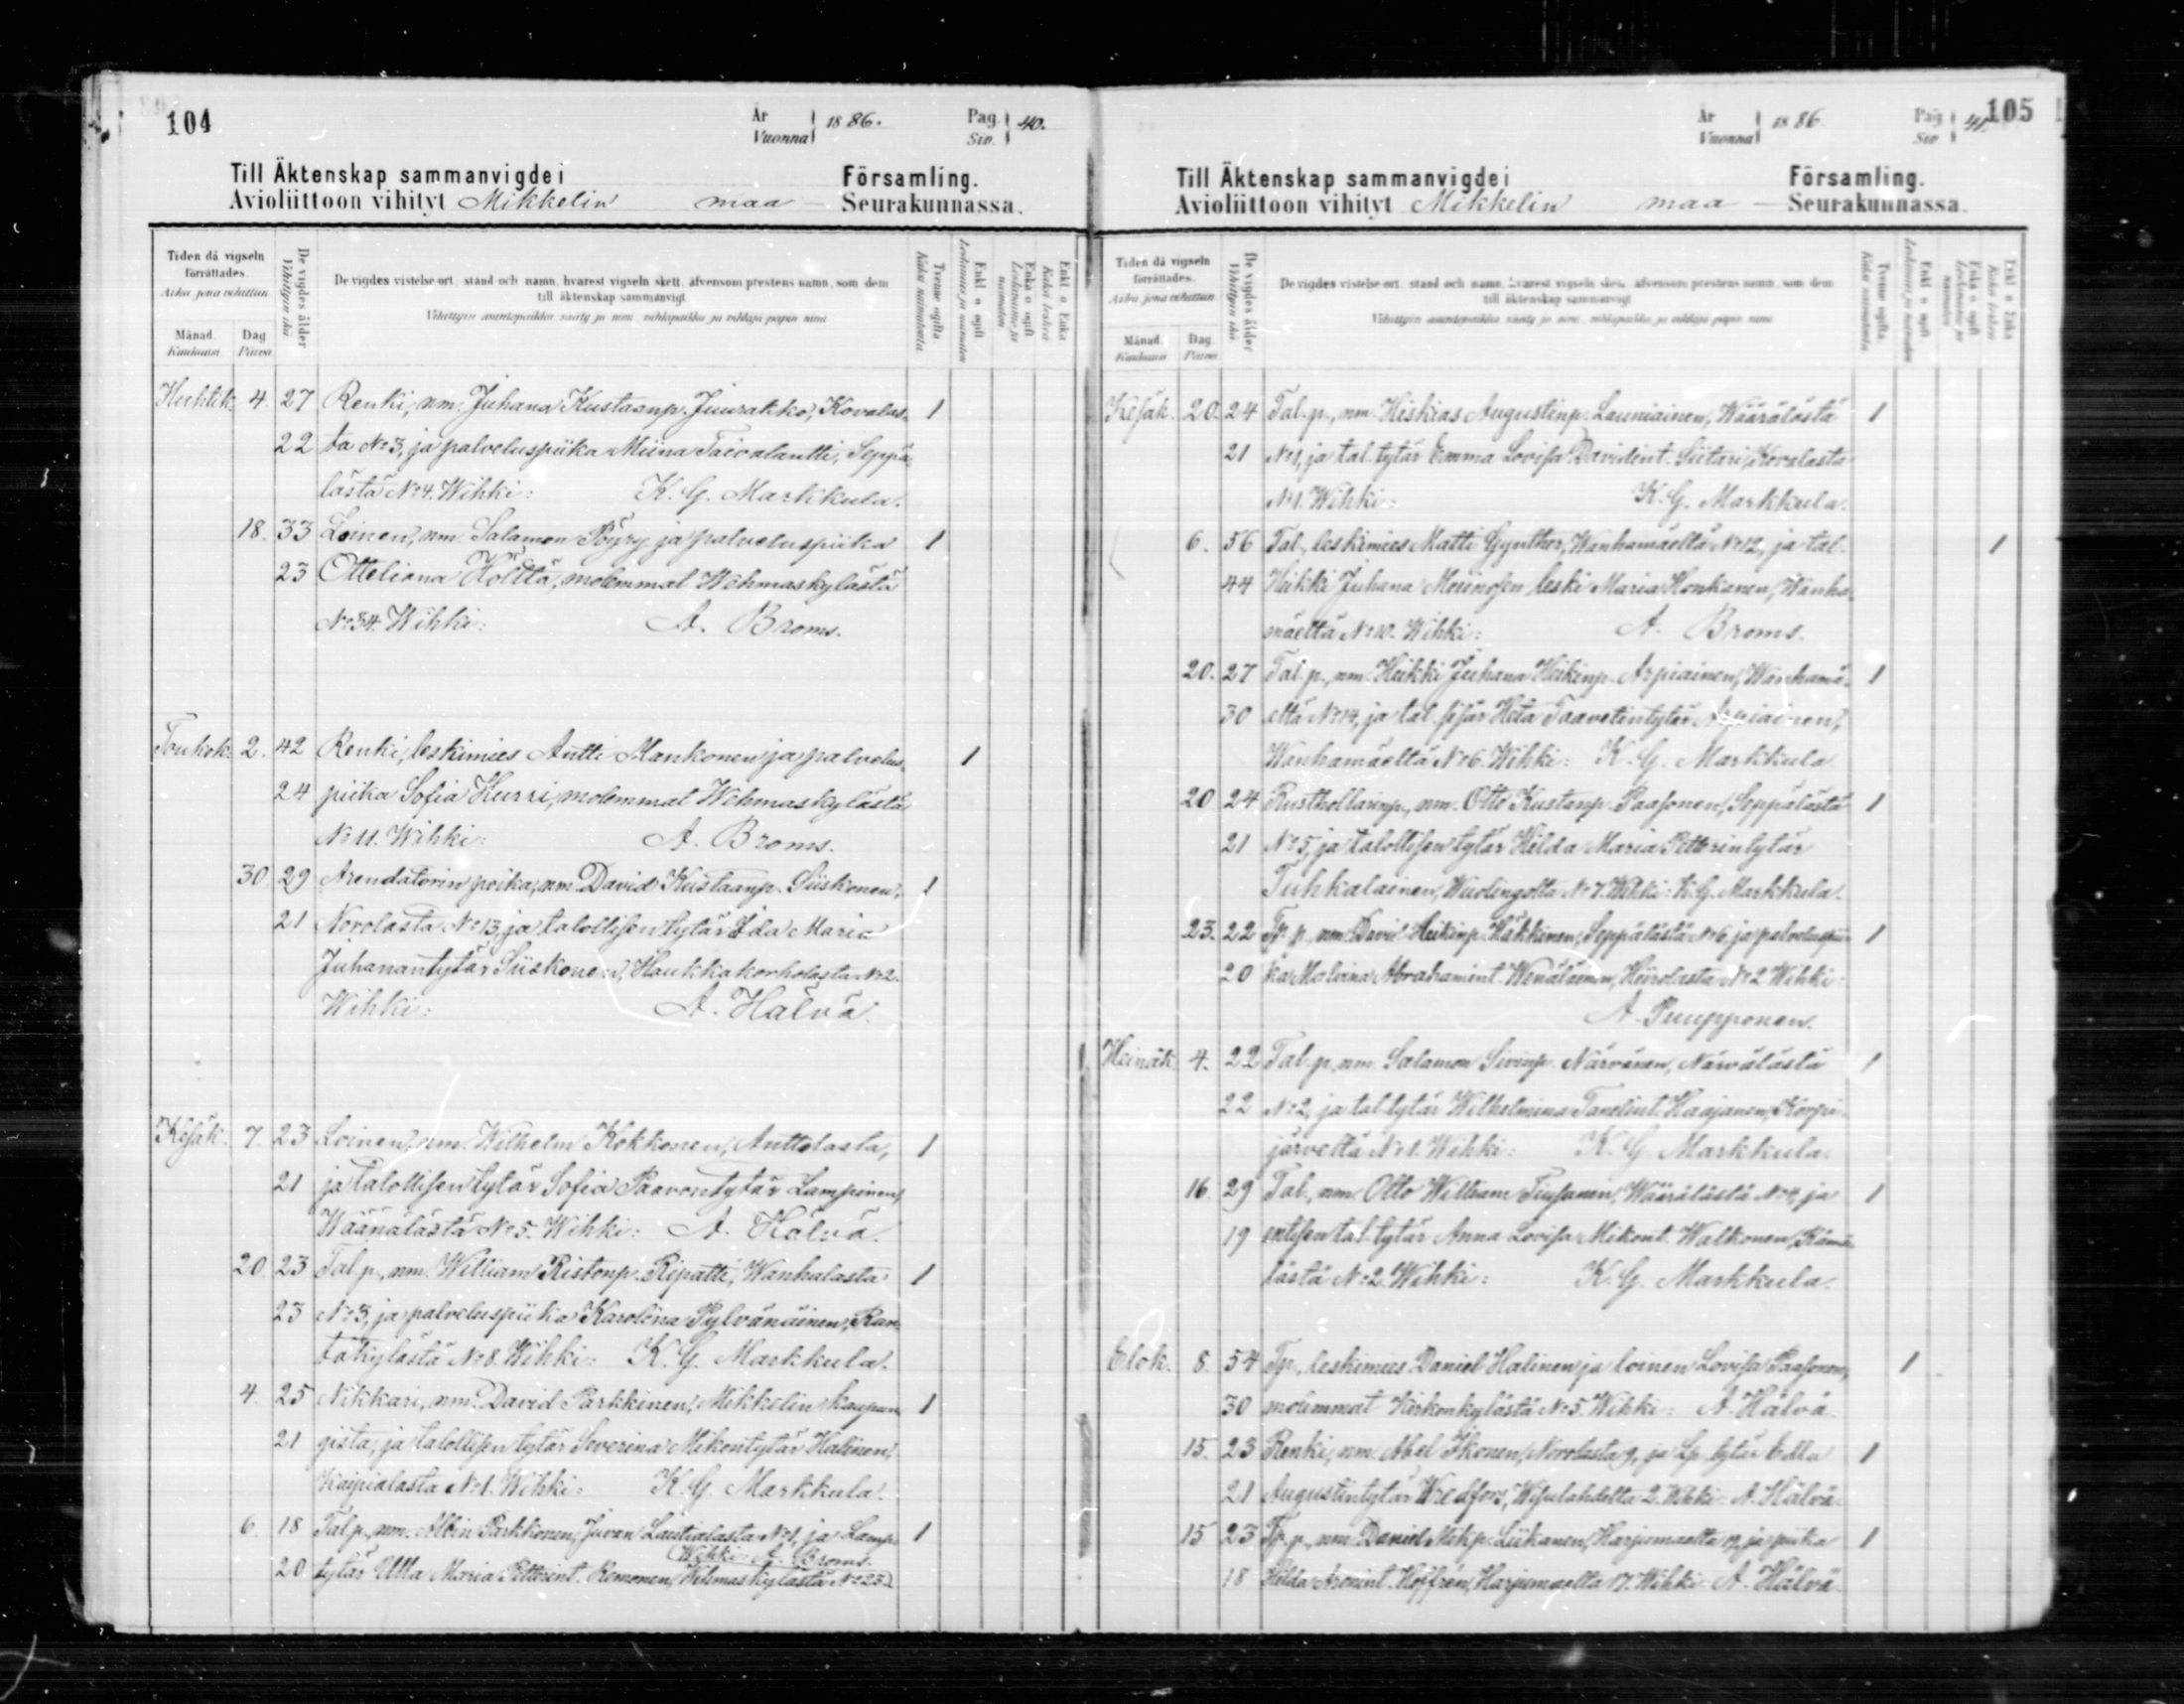 104
År
Vuonna
1886.
Pag.
Siv.
40.
Till Äktenskap sammanvigde i Församling.
Avioliittoon vihityt Mikkelin maa — Seurakunnassa.
Tiden då vigseln förrättades.
Aika, jona vihittiin
Månad.
Kuukausi
Dag
Päivä
De vigdes ålder
Vihittyin ikä
De vigdes vistelse ort, stånd och namn, hvarest vigseln skett, äfvensom prestens namn, som dem
till äktenskap sammanvigt
Vihittyin asuntopaikka, sääty ja nimi, vihkipaikka ja vihkijä papin nimi
Tvenne ogifta.
Kaksi naimatonta
Enkl. o. ogift
Leskimies ja naimaton
Enka o. ogift
Leskivaimo ja naimaton
Enkl. o. Enka
Kaksi leskeä
Huhtik. 4. 27 Renki, nm. Juhana Kustaanp. Juurakko, Kovalas- 1
22 ta No 3, ja palveluspiika Miina Taivalantti, Seppä-
lästä No 4. Wihki: K. G. Markkula.
18. 33 Loinen, nm. Salamon Pöyry ja palveluspiika 1
23 Otteliana Hölttä, molemmat Wehmaskylästä
No 34. Wihki: A. Broms.
Toukok. 2. 42 Renki, leskimies Antti Mankonen ja palvelus- 1
24 piika Sofia Hurri, molemmat Wehmaskylästä
No 11. Wihki: A. Broms.
30 29 Arendatorin poika, nm. David Kustaanp. Siiskonen, 1
21 Norolasta No 13, ja talollisen tytär Ida Maria
Juhanantytär Siiskonen, Haukkakorholasta No 2.
Wihki: A. Hälvä.
Kesäk. 7. 23 Loinen, nm. Wilhelm Kokkonen, Anttolasta, 1
21 ja talollisen tytär Sofia Paavontytär Lampinen,
Wäänälästä No 5. Wihki: A. Hälvä.
20. 23 Tal. p., nm. William Ristonp. Ripatti, Wanhalasta 1
23 No 3, ja palveluspiika Karolina Pylvänäinen, Ran-
takylästä No 8. Wihki: K. G. Markkula.
4. 25 Nikkari, nm. David Parkkinen, Mikkelin kaupun- 1
21 gista, ja talollisen tytär Severina Mikontytär Halinen,
Kaipialasta No 1. Wihki: K. G. Markkula.
6. 18 Tal. p., nm. Albin Parkkonen, Juvan Lautialasta No 1, ja Lamp. 1
Wihki: A. Broms.
20 tytär Ulla Maria Petterint. Romonen, Wehmaskylästä No 23.
105
År
Vuonna
1886.
Pag.
Siv.
41.
Till Äktenskap sammanvigde i Församling.
Avioliittoon vihityt Mikkelin maa — Seurakunnassa.
Tiden då vigseln förrättades.
Aika, jona vihittiin
Månad.
Kuukausi
Dag
Päivä
De vigdes ålder
Vihittyin ikä
De vigdes vistelse ort, stånd och namn, hvarest vigseln skett, äfvensom prestens namn, som dem
till äktenskap sammanvigt
Vihittyin asuntopaikka, sääty ja nimi, vihkipaikka ja vihkijä papin nimi
Tvenne ogifta.
Kaksi naimatonta
Enkl. o. ogift
Leskimies ja naimaton
Enka o. ogift
Leskivaimo ja naimaton
Enkl. o. Enka
Kaksi leskeä
Kesäk. 20. 24 Tal. p., nm. Hiskias Augustinp. Launiainen, Wäärälästä 1
21 No 1, ja tal. tytär Emma Lovisa Davidint. Siitari, Kovalasta
No 1. Wihki: K. G. Markkula.
6. 56 Tal., leskimies Matti Gynther, Wanhamäeltä No 12, ja tal.
1
44 Heikki Juhana Moinosen leski Maria Honkanen, Wanha-
mäeltä No 10. Wihki: A. Broms.
20. 27 Tal. p., nm. Heikki Juhana Heikinp. Arpiainen, Wanhamä- 1
30 eltä No 14, ja tal. sisär Heta Taavetintytär Arpiainen,
Wanhamäeltä No 6. Wihki: K. G. Markkula.
20 24 Rusthollarinp., nm. Otto Kustanp. Paasonen, Seppälästä 1
21 No 5, ja talollisen tytär Hilda Maria Petterintytär
Tuhkalainen, Wuolingolta No 7. Wihki: K. G. Markkula.
23. 22 Tp. p., nm. David Heikinp. Häkkinen, Seppälästä No 6, ja palveluspii- 1
20 ka Malvina Abrahamint. Wenäläinen, Hiirolasta No 2. Wihki:
A. Puupponen.
Heinäk. 4. 22 Tal. p., nm. Salamon Sivinp. Närvänen, Närvälästä 1
22 No 2, ja tal. tytär Wilhelmina Tanelint. Haajanen, Korpi-
järveltä No 1. Wihki: K. G. Markkula.
16. 29 Tal., nm. Otto William Tiusanen, Wäärälästä No 4, ja 1
19 entisen tal. tytär Anna Lovisa Mikont. Walkonen,
lästä No 2. Wihki: K. G. Markkula.
Elok. 8. 54 Tp., leskimies Daniel Halinen ja loinen Lovisa Paasonen, 1
30 molemmat Kirkonkylästä No 5. Wihki: A. Hälvä.
15. 23 Renki, nm. Abel Ikonen, Norolasta 9, ja Lp. tytär Edla 1
21 Augustintytär Wredfors, Wisulahdelta 2. Wihki: A. Hälvä.
15 23 Tp. p., nm. Daniel Mikp. Liikanen, Harjumaalta 17, ja piika 1
18 Hilda Aronint. Hoffrén, Harjumaalta 17. Wihki: A. Hälvä